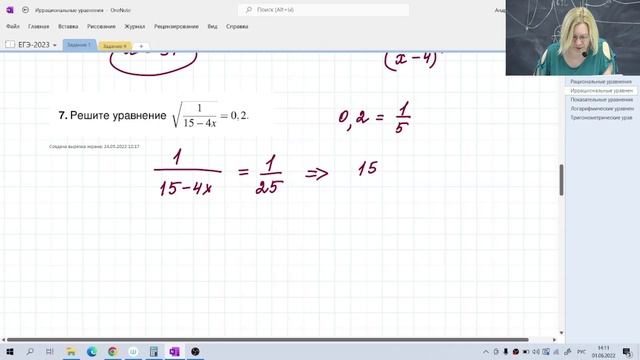 Иррациональные уравнения - OneNote
Поиск (Alt+Ы)
Файл Главная Вставка Рисование История Рецензирование Вид Справка
ЕГЭ-2023
Задание 1
Задание 4
(x-4)
Рациональные уравнения
Иррациональные уравнен
Показательные уравнения
Логарифмические уравнен
Тригонометрические урав
7. Решите уравнение √(1/(15 − 4x)) = 0,2.
0,2 = 1/5
Создана вырезка экрана: 24.05.2022 13:17
1/(15-4x) = 1/25 ⇒ 15
РУС
14:11
01.06.2022